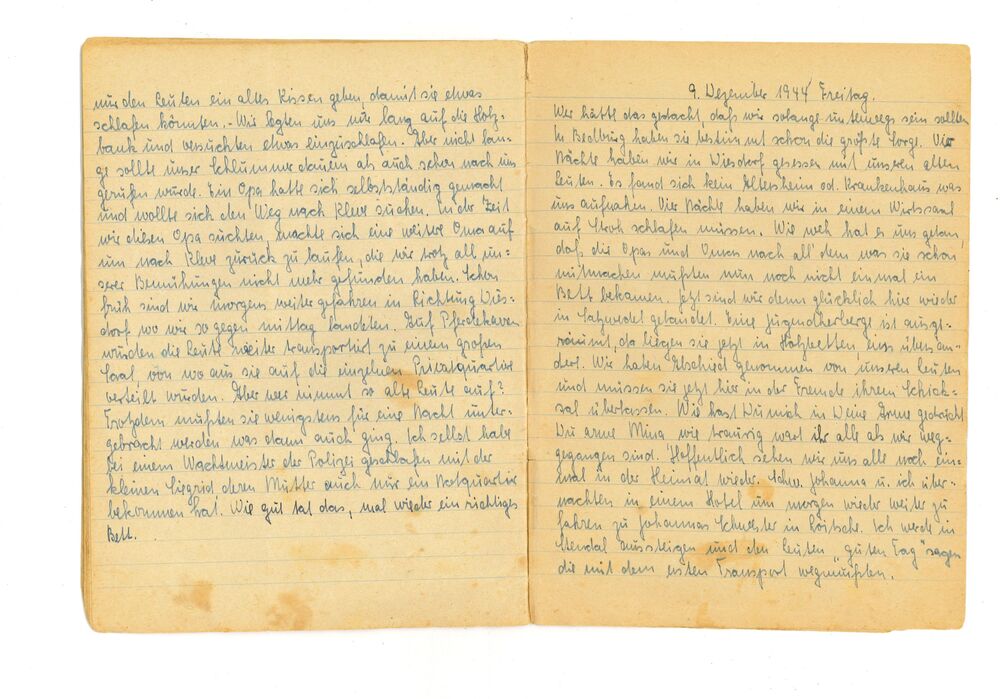 nur den Leuten ein altes Kissen geben, damit sie etwas
schlafen könnten. - Wir legten uns nur lang auf die Holz=
bank und versuchten etwas einzuschlafen. Aber nicht lan=
ge sollte unser Schlummer dauern als auch schon nach uns
gerufen wurde. Ein Opa hatte sich selbstständig gemacht
und wollte sich den Weg nach Kleve suchen. In der Zeit
wir diesen Opa suchten, machte sich eine weitere Oma auf
um nach Kleve zurück zu laufen, die wir trotz all un=
serer Bemühungen nicht mehr gefunden haben. Schon
früh sind wir morgens weitergefahren in Richtung Wies=
dorf wo wir so gegen mittag landeten. Auf Pferdekarren
wurden die Leute weiter transportirt zu einem großen
Saal, von wo aus sie auf die einzelnen Privatquartire
verteilt wurden. Aber wer nimmt so alte Leute auf?
Trotzdem mußten sie wenigstens für eine Nacht unter=
gebracht werden was dann auch ging. Ich selbst habe
bei einem Wachtmeister der Polizei geschlafen mit der
kleinen Siegrid deren Mutter auch mir ein Notquartir
bekommen hat. Wie gut tat das, mal wieder ein richtiges
Bett.
9. Dezember 1944 Freitag.
Wer hätte das gedacht, daß wir solange unterwegs sein sollten
In Bedburg haben sie bestimmt schon die größte Sorge. Vier
Nächte haben wir in Wiesdorf gesessen mit unseren alten
Leuten. Es fand sich kein Altersheim od. Krankenhaus was
uns aufnahm. Vier Nächte haben wir in einem Wirtssaal
auf Stroh schlafen müssen. Wie weh hat es uns getan,
daß die Opas und Omas nach all dem was sie schon
mitmachen mußten nun noch nicht einmal ein
Bett bekamen. Jetzt sind wir denn glücklich hier wieder
in Salzwedel gelandet. Eine Jugendherberge ist ausge=
räumt, da liegen sie jetzt in Holzbetten, eins über an=
dert. Wir haben Abschied genommen von unseren Leuten
und müssen sie jetzt hier in der Fremde ihrem Schick=
sal überlassen. Wie hast Du mich in Deine Arme gedrückt
Du arme Mina wie traurig wart ihr alle als wir weg=
gegangen sind. Hoffentlich sehen wir uns alle noch ein=
mal in der Heimat wieder. Johanna u. ich über=
nachten in einem Hotel um morgen wieder weiter zu
fahren zu Johannas Schwester in Ich werde in
Stendal aussteigen und den Leuten „guten Tag" sagen
die mit dem ersten Transport wegmußten.